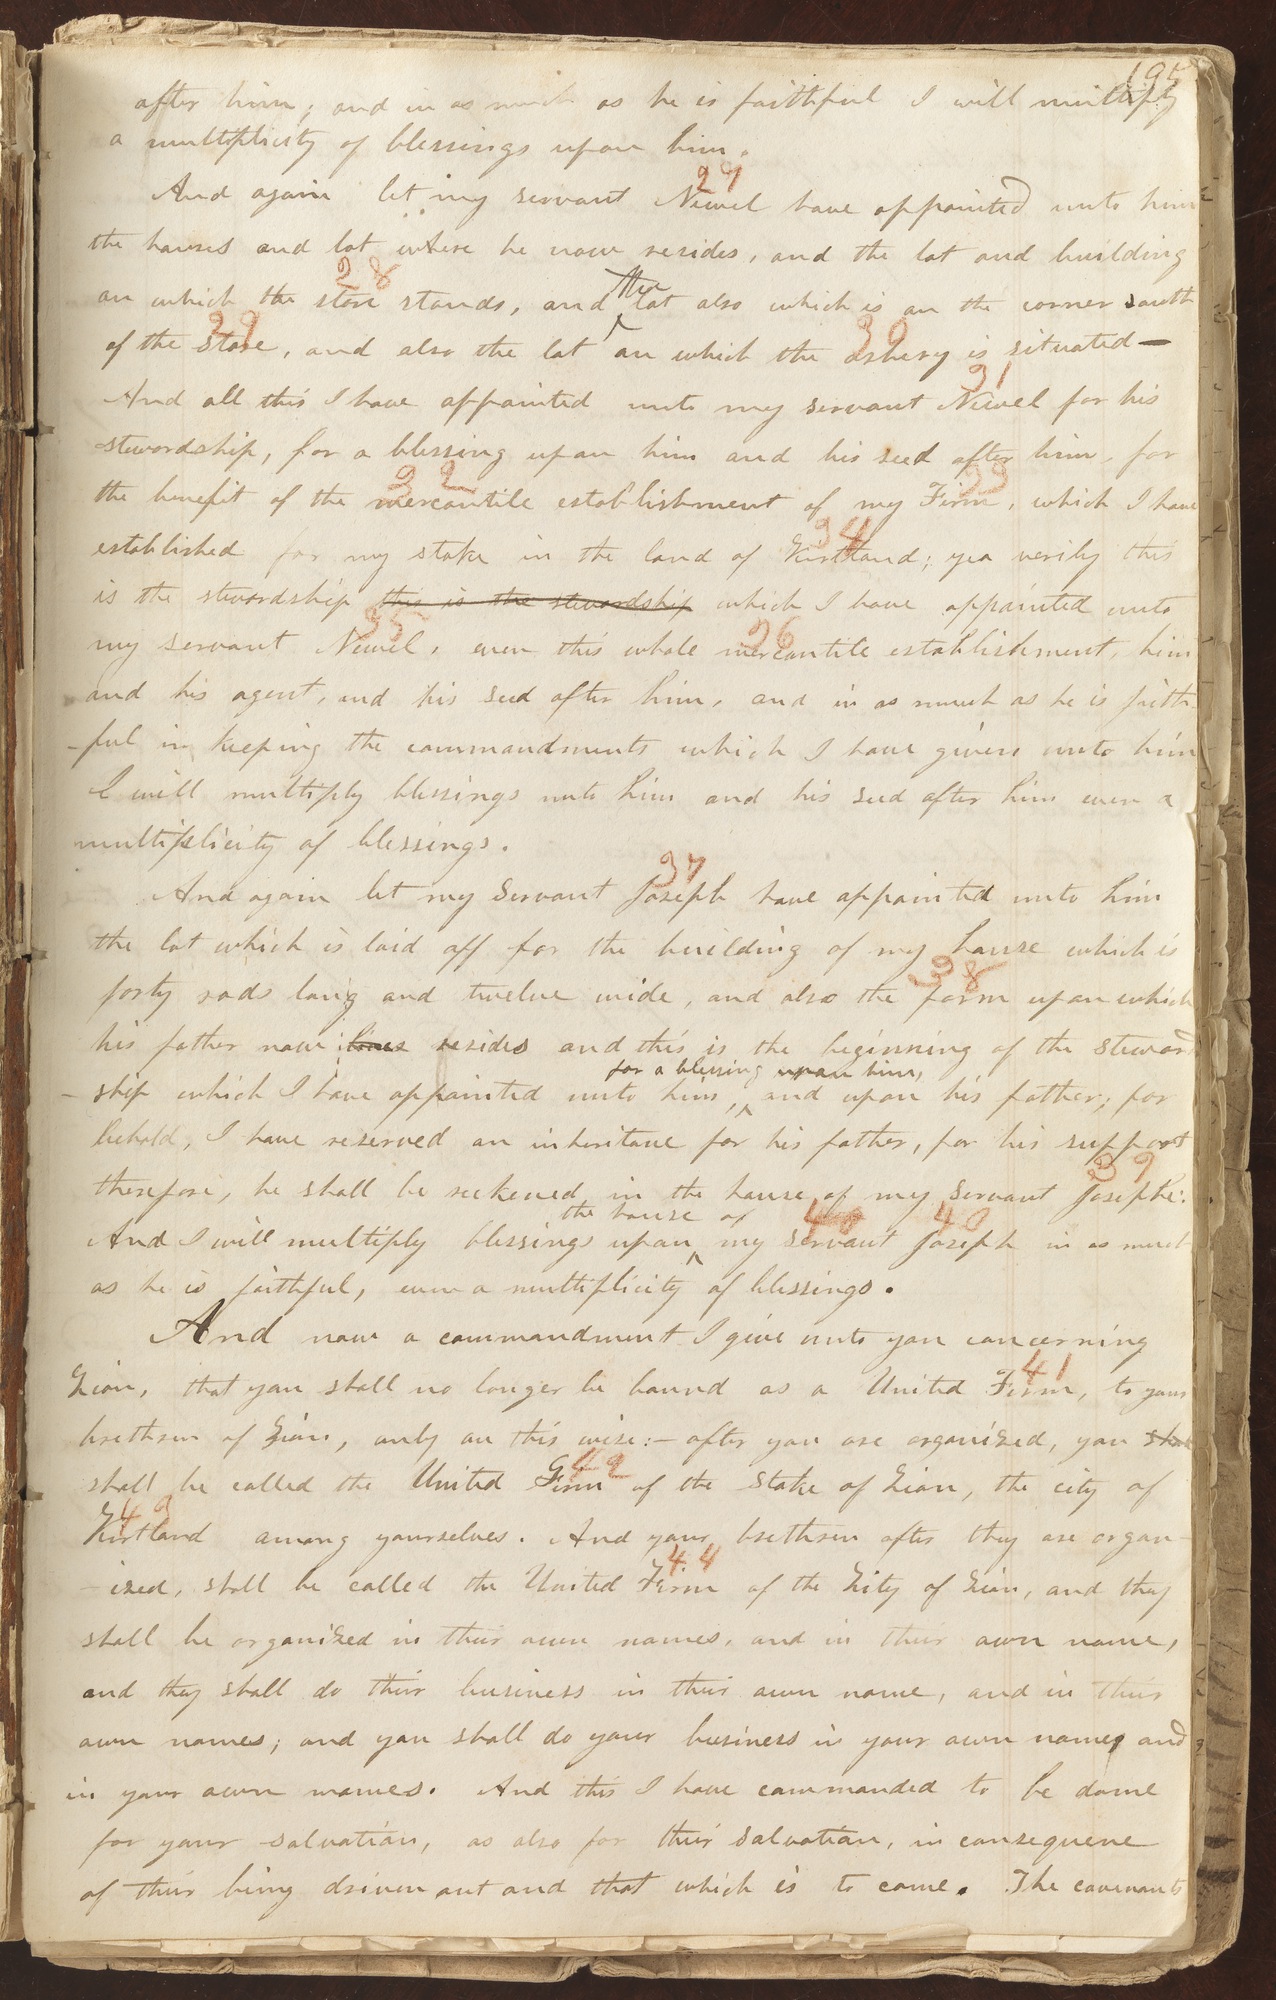 195
after him; and in as much as he is faithful I will multiply
a multiplicity of blessings upon him.
27
And again let my servant Newel have appointed unto him
the houses and lot where he now resides, and the lot and building
28
the
on which the store stands, and lot also which is on the corner south
29 30
of the store, and also the lot on which the ashery is situated—
31
And all this I have appointed unto my servant Newel for his
stewardship, for a blessing upon him and his seed after him, for
32 33
the benefit of the mercantile establishment of my Firm, which I have
34
established for my stake in the land of Kirtland; yea verily this
is the stewardship this is the stewardship which I have appointed unto
35 36
my servant Newel, even this whole mercantile establishment, him
and his agent, and his seed after him, and in as much as he is faith-
-ful in keeping the commandments which I have given unto him
I will multiply blessings unto him and his seed after him even a
multiplicity of blessings.
37
And again let my servant Joseph have appointed unto him
the lot which is laid off for the building of my house which is
38
forty rods long and twelve wide, and also the farm upon which
his father now lives resides and this is the beginning of the steward
for a blessing upon him,
-ship which I have appointed unto him, and upon his father; for
behold, I have reserved an inheritance for his father, for his support
39
therefore, he shall be reckened in the house of my servant Joseph:
the house of 40 40
And I will multiply blessings upon my servant Joseph in as much
as he is faithful, even a multiplicity of blessings.
And now a commandment I give unto you concerning
41
Zion, that you shall no longer be bound as a United Firm, to your
brethren of Zion, only on this wise:— after you are organized, you shall
42
shall be called the United Firm of the Stake of Zion, the city of
43
Kirtland among yourselves. And your brethren after they are organ-
44
-ized, shall be called the United Firm of the City of Zion, and they
shall be organized in their own names, and in their own name,
and they shall do their business in their own name, and in their
own names; and you shall do your business in your own name, and
in your own names. And this I have commanded to be done
for your salvation, as also for their salvation, in consequence
of their being driven out and that which is to come. The covenants